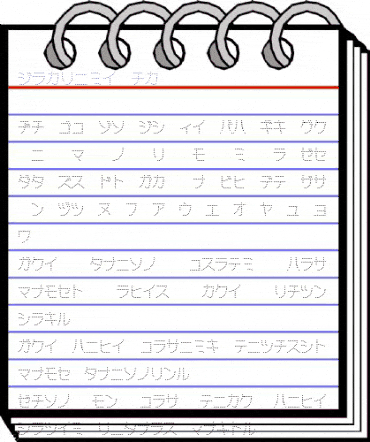 ジラカリニミイ チカ
ヂチ ゴコ ゾソ ジシ ィイ バハ ギキ グク
ニ マ ノ リ モ ミ ラ ゼセ
ダタ ズス ドト ガカ ナ ビヒ デテ ザサ
ン ヅツ ヌ フ ア ウ エ オ ヤ ュ ヨ
ワ
ガクイ タナニソノ コスラテミ ハラサ
マナモセト ラヒイス カクイ リチツン
シラキル
ガクイ ハニヒイ コラサニミキ テニツチスシト
マナモセ タナニソノリンル
ゼチソノ モン コラサ テニカク ハニヒイ